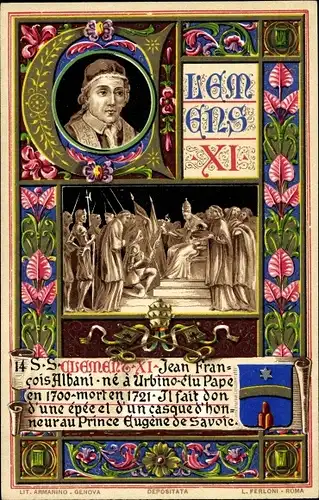 CLEM
ENS
XI
14 S·S·CLEMENT·XI·Jean Fran-
çois Albani·né à Urbino·élu Pape
en 1700·mort en 1721·Il fait don
d'une épée et d'un casque d'hon-
neur au Prince Eugène de Savoie.
LIT. ARMANINO - GENOVA
DEPOSITATA
L. FERLONI - ROMA